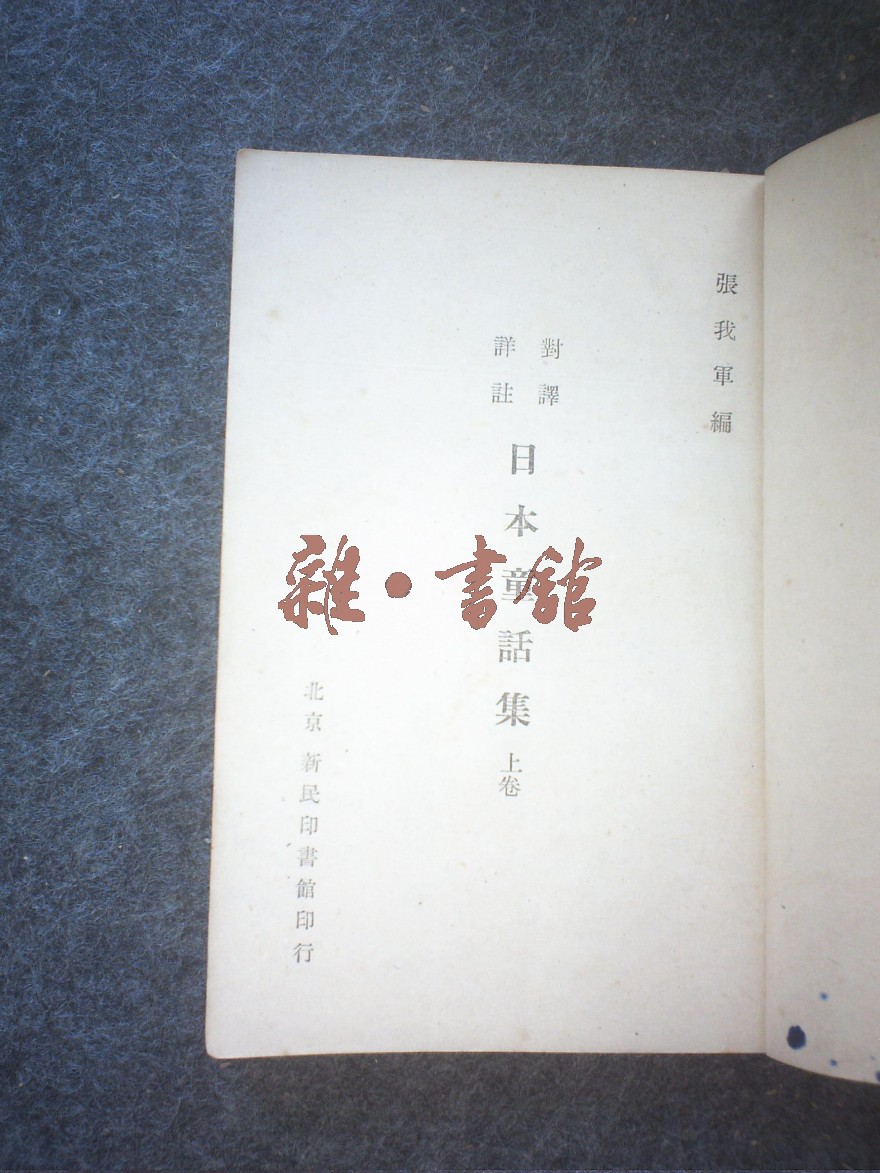 張我軍編
對譯
詳註
日本童話集 上卷
北京 新民印書館印行
雜·書館